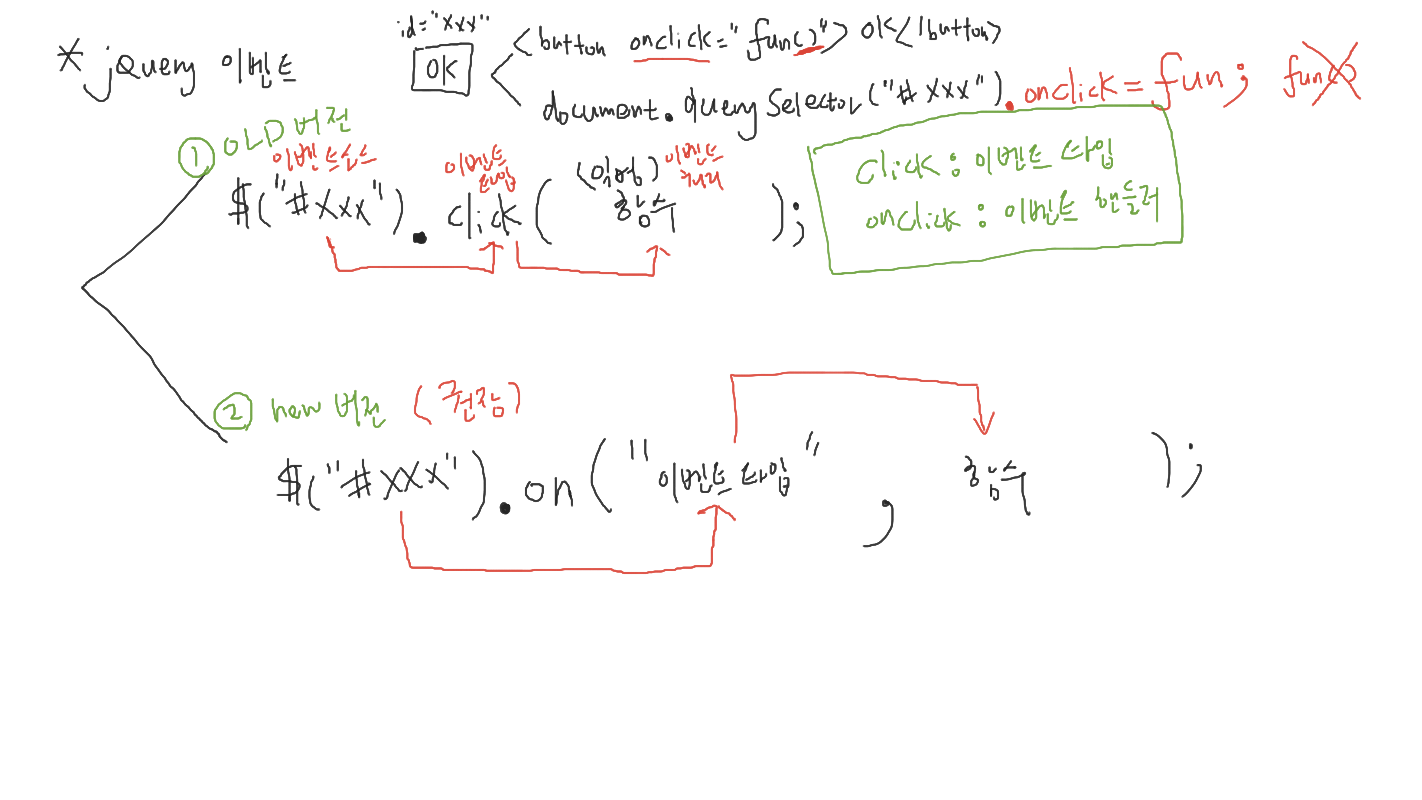 * jQuery 이벤트
id="xxx"
OK
<button onclick="fun()"> OK</button>
document.querySelector("#xxx").onclick=fun; fun()
① OLD 버전
이벤트소스
이벤트 타입
(익명) 이벤트 처리
$("#xxx").click( 함수 );
click : 이벤트 타입
onclick : 이벤트 핸들러
② new 버전 (권장)
$("#xxx").on("이벤트 타입" , 함수 );